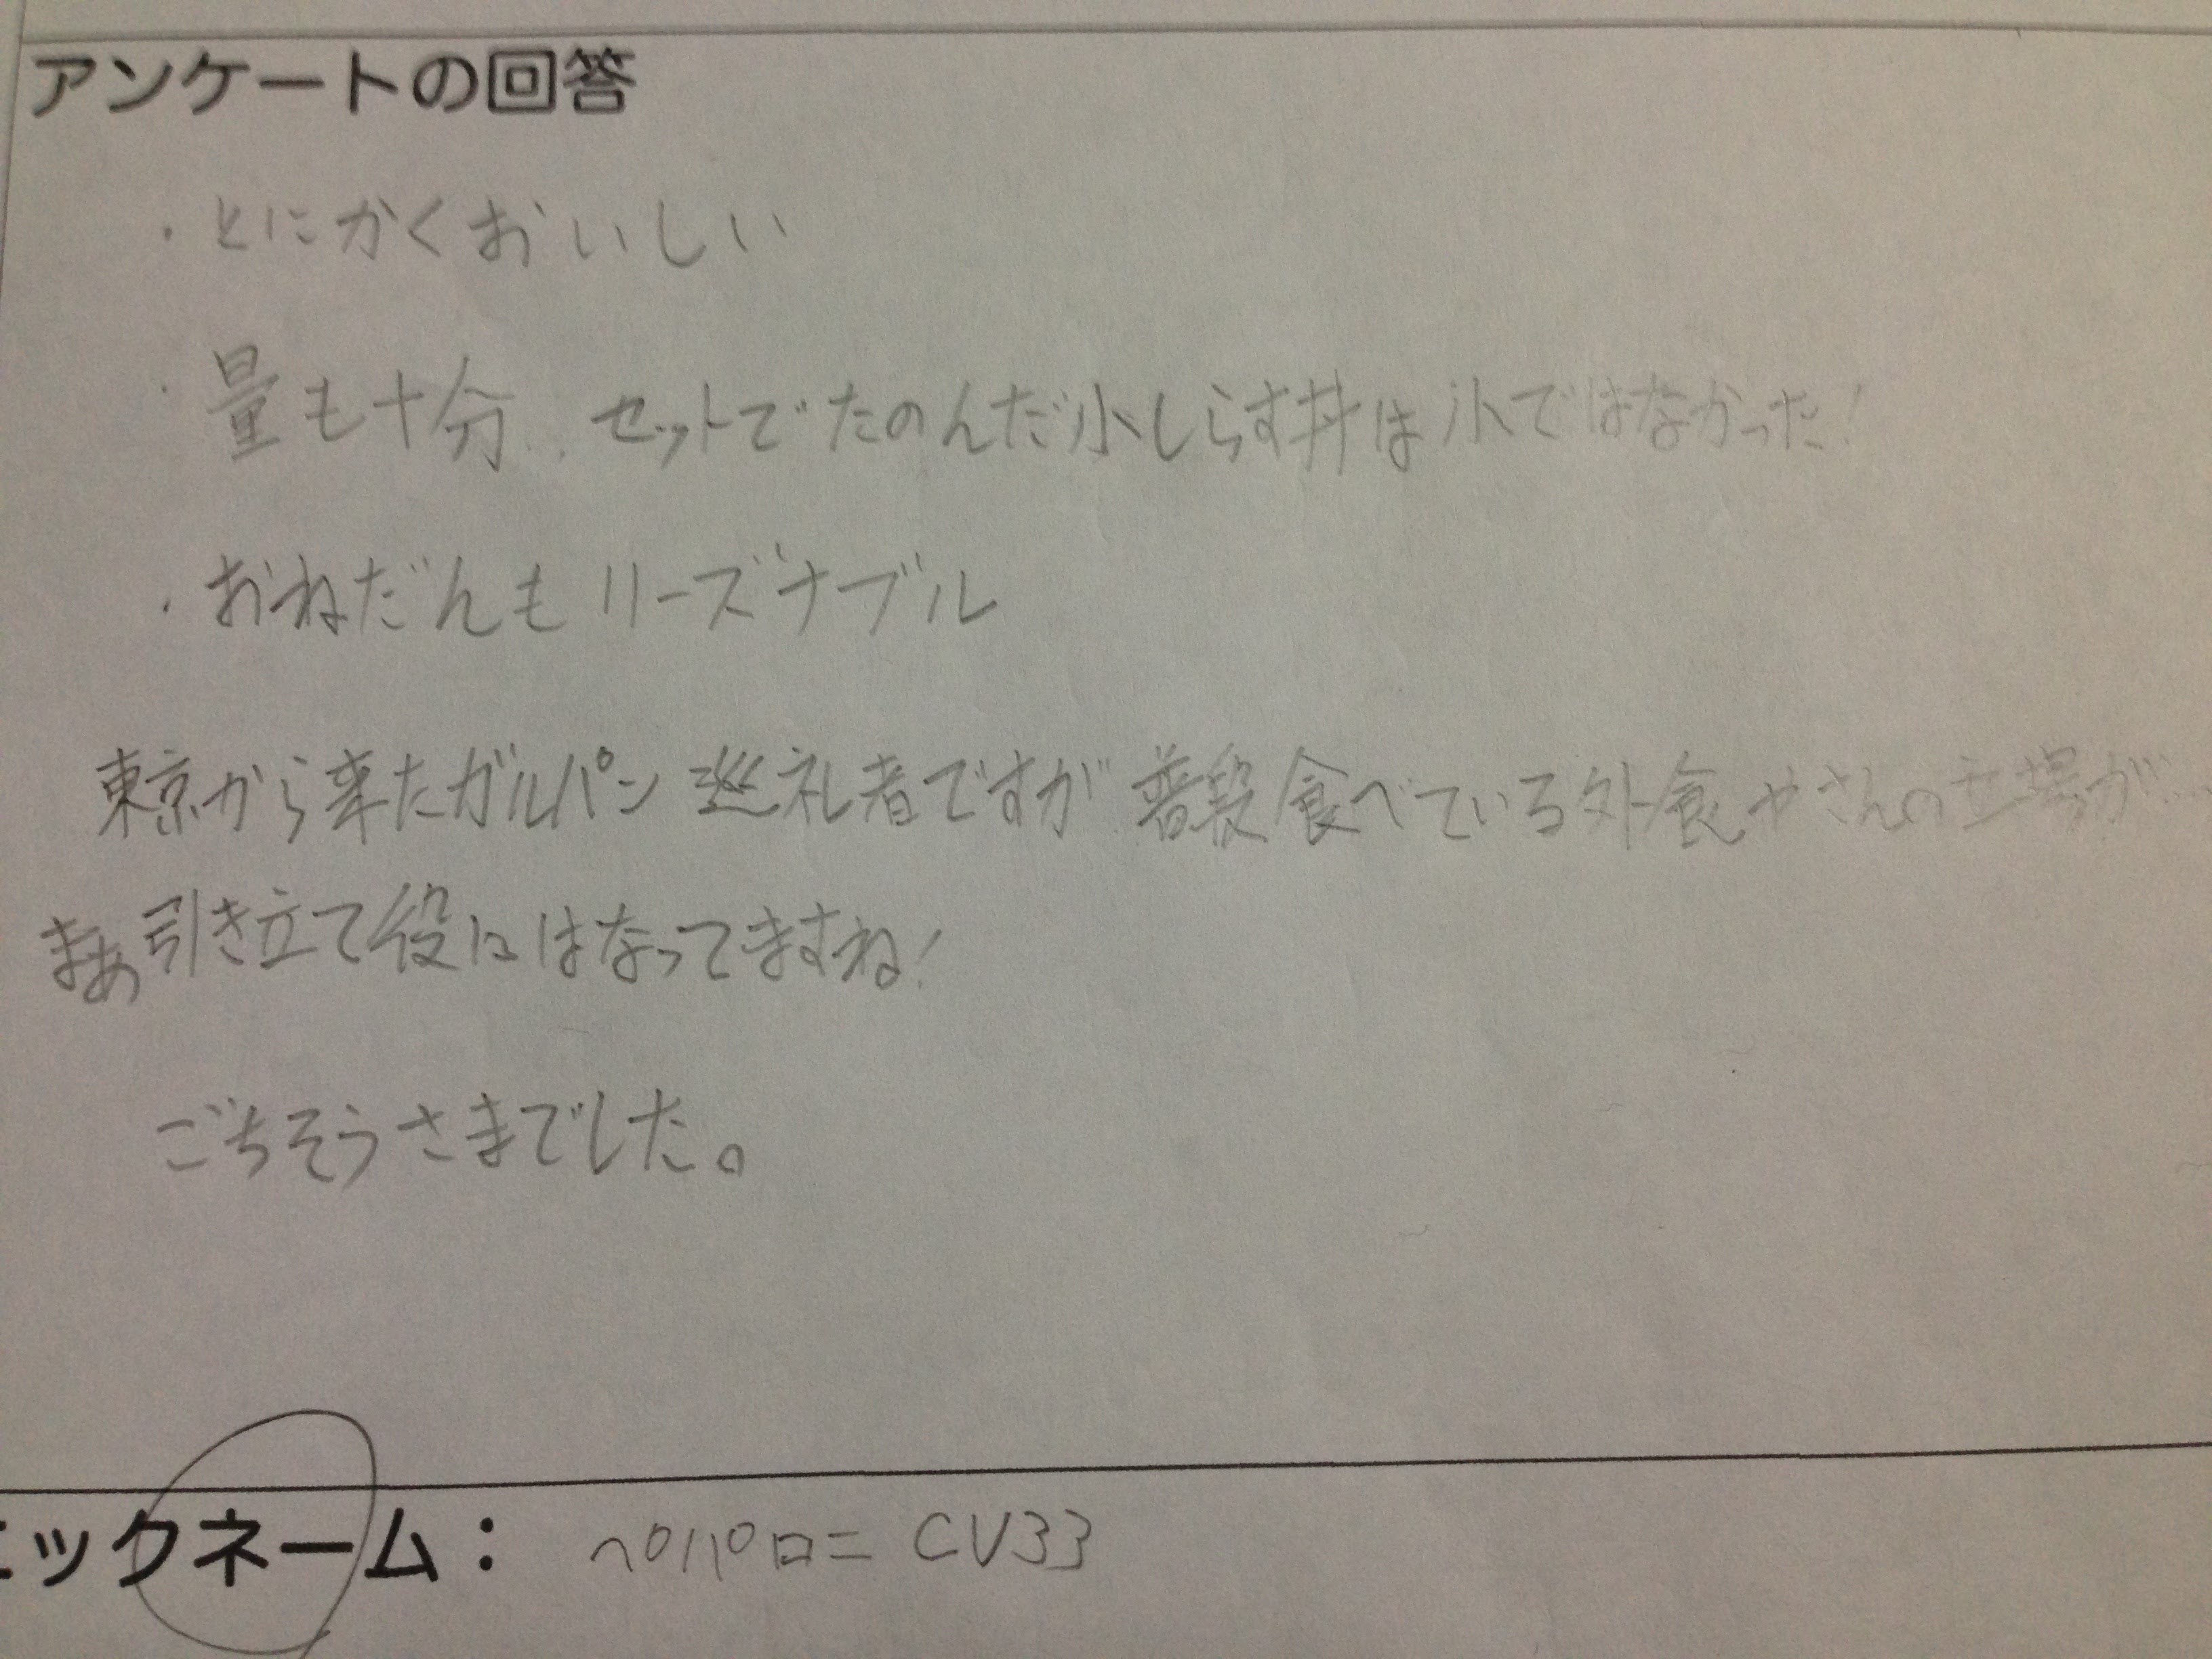 アンケートの回答
・とにかくおいしい
・量も十分.. セットでたのんだ小しらす丼は小ではなかった!
・おねだんもリーズナブル
東京から来たガルパン巡礼者ですが 普段食べている外食やさんの立場が...
まぁ引き立て役にはなってますね!
ごちそうさまでした。
ニックネーム: ペパロニ CV33